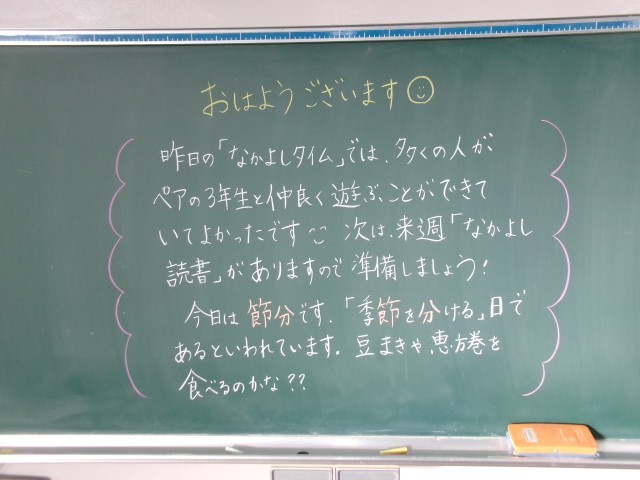 おはようございます
昨日の「なかよしタイム」では、多くの人が
ペアの3年生と仲良く遊ぶことができて
いてよかったです 次は、来週「なかよし
読書」がありますので準備しましょう!
今日は節分です。「季節を分ける」日で
あるといわれています。豆まきや、恵方巻を
食べるのかな??